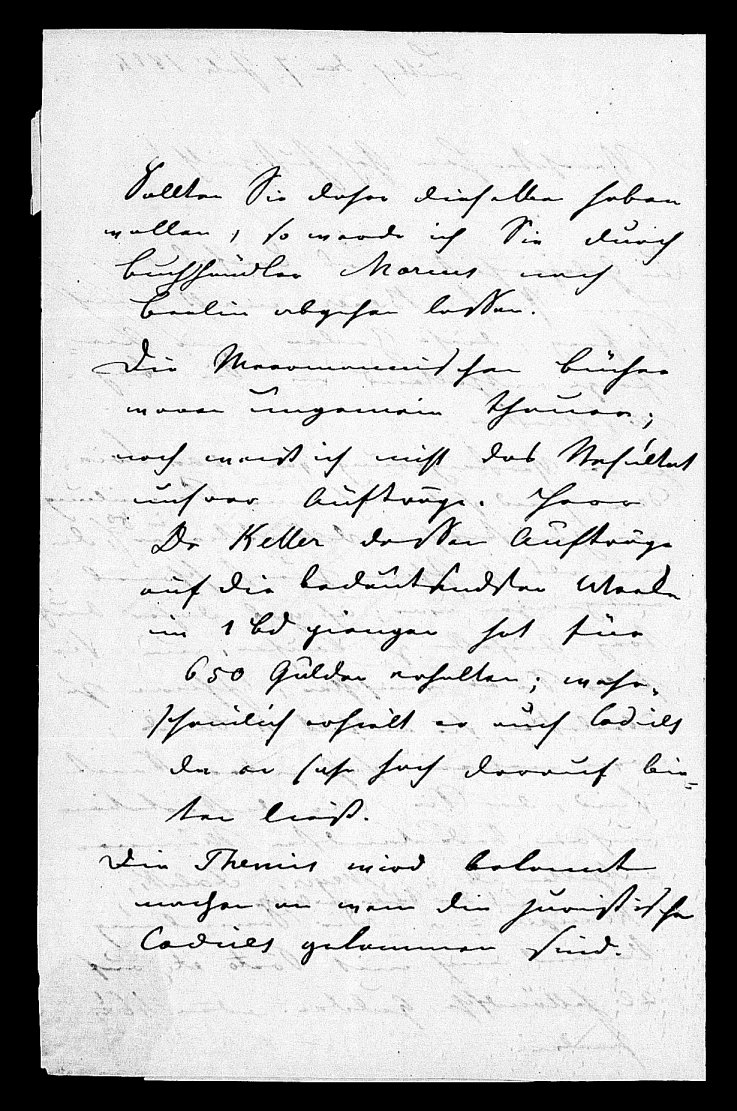 Sollten Sie daher dieselben haben
wollen, so werde ich Sie durch
Buchhändler Marcus nach
Berlin abgehen lassen.
Die Meermannischen Bücher
waren ungemein theuer;
noch weiß ich nicht das Resultat
unsrer Aufträge. Herr
Dr Keller dessen Aufträge
auf die bedeutendsten Werke
in 1 Bd giengen hat für
650 Gulden erhalten; wahr-
scheinlich erhielt er auch Codices
da er sehr hoch darauf bie-
ten ließ.
Die Themis wird bekannt
machen an wem die juristischen
Codices gekommen sind.